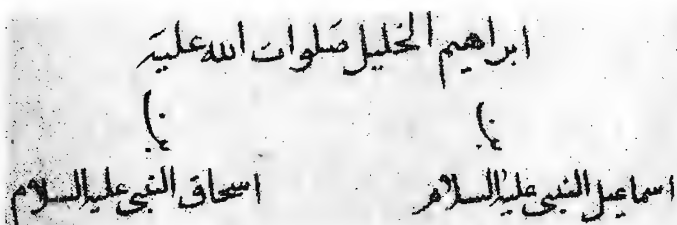 ابراهيم الخليل صلوات الله عليه
اسماعيل النبي عليه السلام
اسحاق النبي عليه السلام